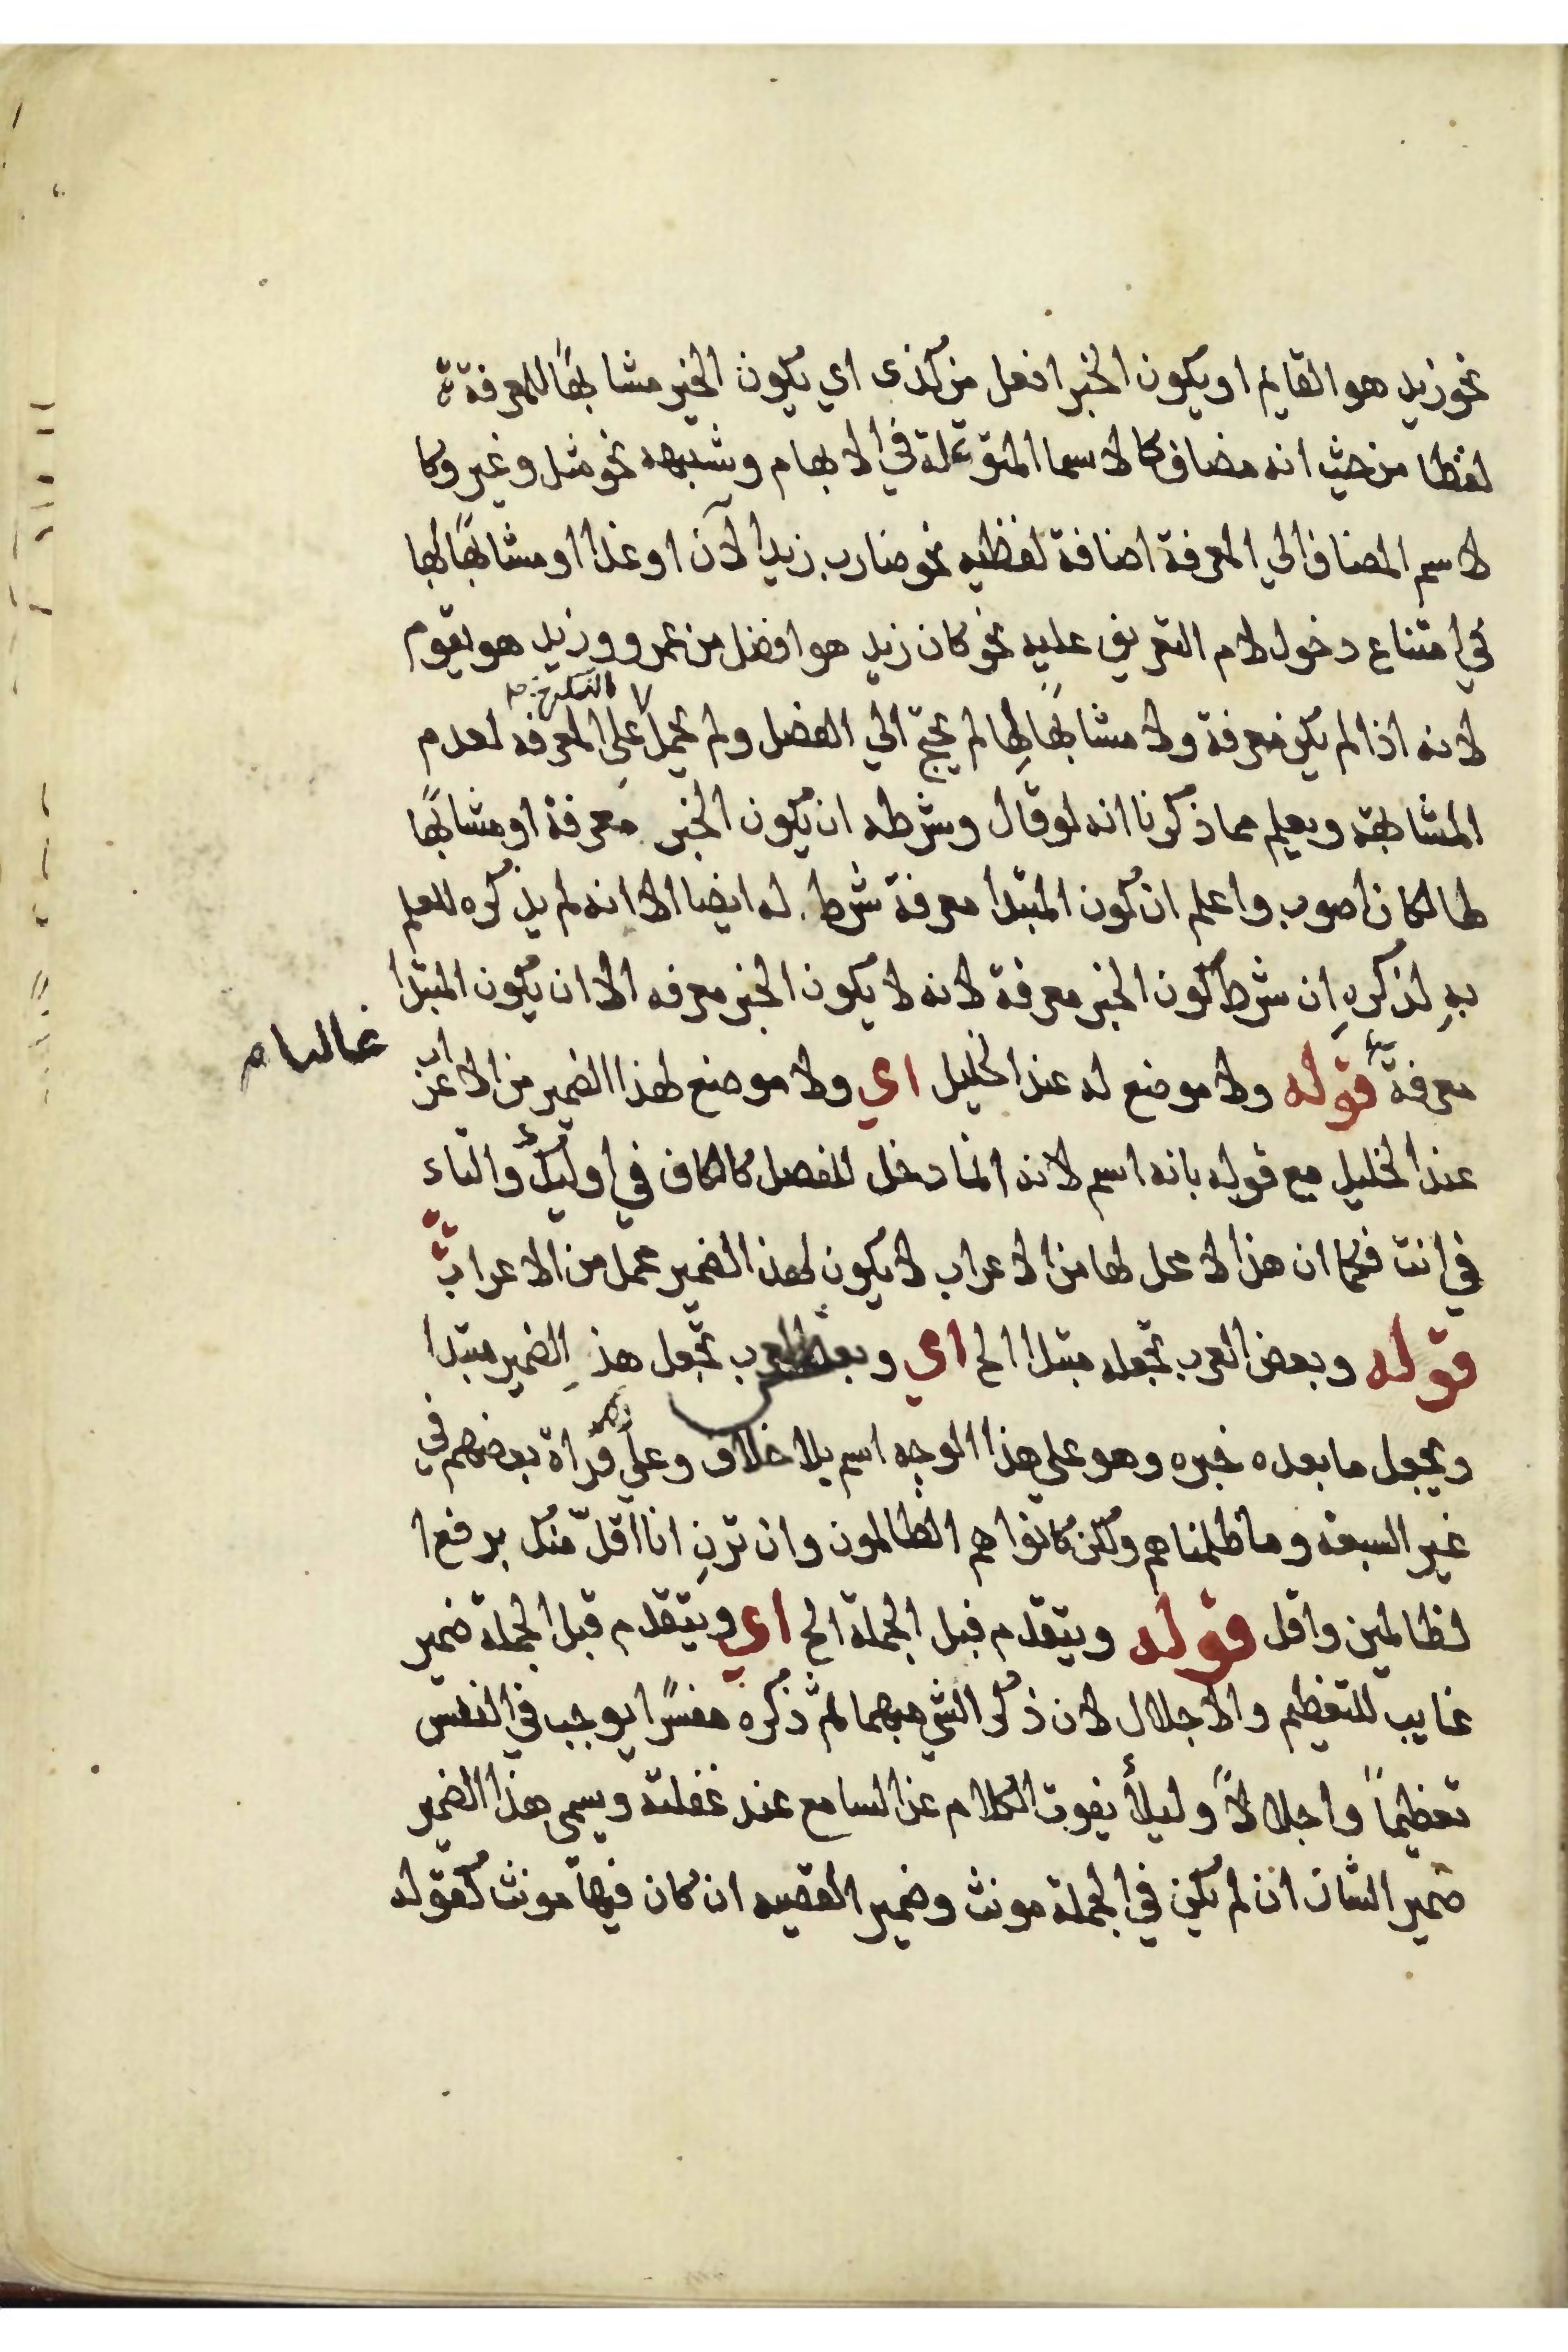 نحو زيد هو القايم او يكون الخبر افعل من كذى اى يكون الخبر مشابهًا للمعرفة
لفظا من حيث انه مضاف كالاسما المتوغلة في الابهام وشبهه نحو مثل وغير وكا
لاسم المضاف الي المعرفة اضافة لفظيه نحو ضارب زيد الآن او غدا او مشابهًا لها
في امتناع دخول لام التعريف عليه نحو كان زيد هو افضل من عمرو وزيد هو يقوم
لانه اذا لم يكن معرفة ولا مشابهًا لها لم يحتج الي الفصل ولم يحمل علي المعرفه لعدم
المشابهة ويعلم مما ذكرنا انه لو قال وشرطه ان يكون الخبر معرفة او مشابهًا
لها لكان اصوب واعلم ان كون المبتدا معرفة شرط له ايضا الا انه لم يذكره للعلم
به لذكره ان شرط كون الخبر معرفة لانه لا يكون الخبر معرفه الا ان يكون المبتدا
غالبا
معرفة قوله ولا موضع له عند الخليل اي ولا موضع لهذا الضمير من الاعراب
عند الخليل مع قوله بانه اسم لانه انما دخل للفصل كالكاف في اوليك والتاء
في انت فكما ان هذا لا محل لها من الاعراب لا يكون لهذا الضمير محمل من الاعراب
قوله وبعض العرب تجعله مبتدا الخ اي وبعض العرب تجعل هذ الضمير مبتدا
ويجعل ما بعده خبره وهو علي هذا الوجه اسم بلا خلاف وعلي قراة بعضهم في
غير السبعة وما ظلمناهم ولكن كانوا هم الظالمون وان ترنِ انا اقلّ منك برفع ا
لظالمين واقل قوله ويتقدم قبل الجملة الخ اي ويتقدم قبل الجملة ضمير
غايب للتعظيم والاجلال لان ذكر الشي مبهما ثم ذكره مفسرًا يوجب في النفس
تعظيمًا واجلالاً وليلأ يفوت الكلام عن السامع عند غفلته ويسمي هذا الضمير
ضمير الشان ان لم يكن في الجملة مونث وضمير القصيه ان كان فيها مونث كقوله